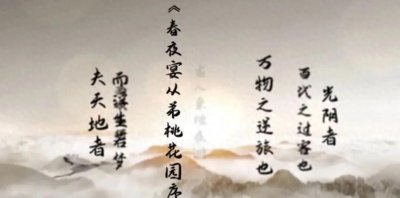 光阴者
百代之过客也
万物之逆旅也
《春夜宴从弟桃花园序
而浮生若梦
夫天地者